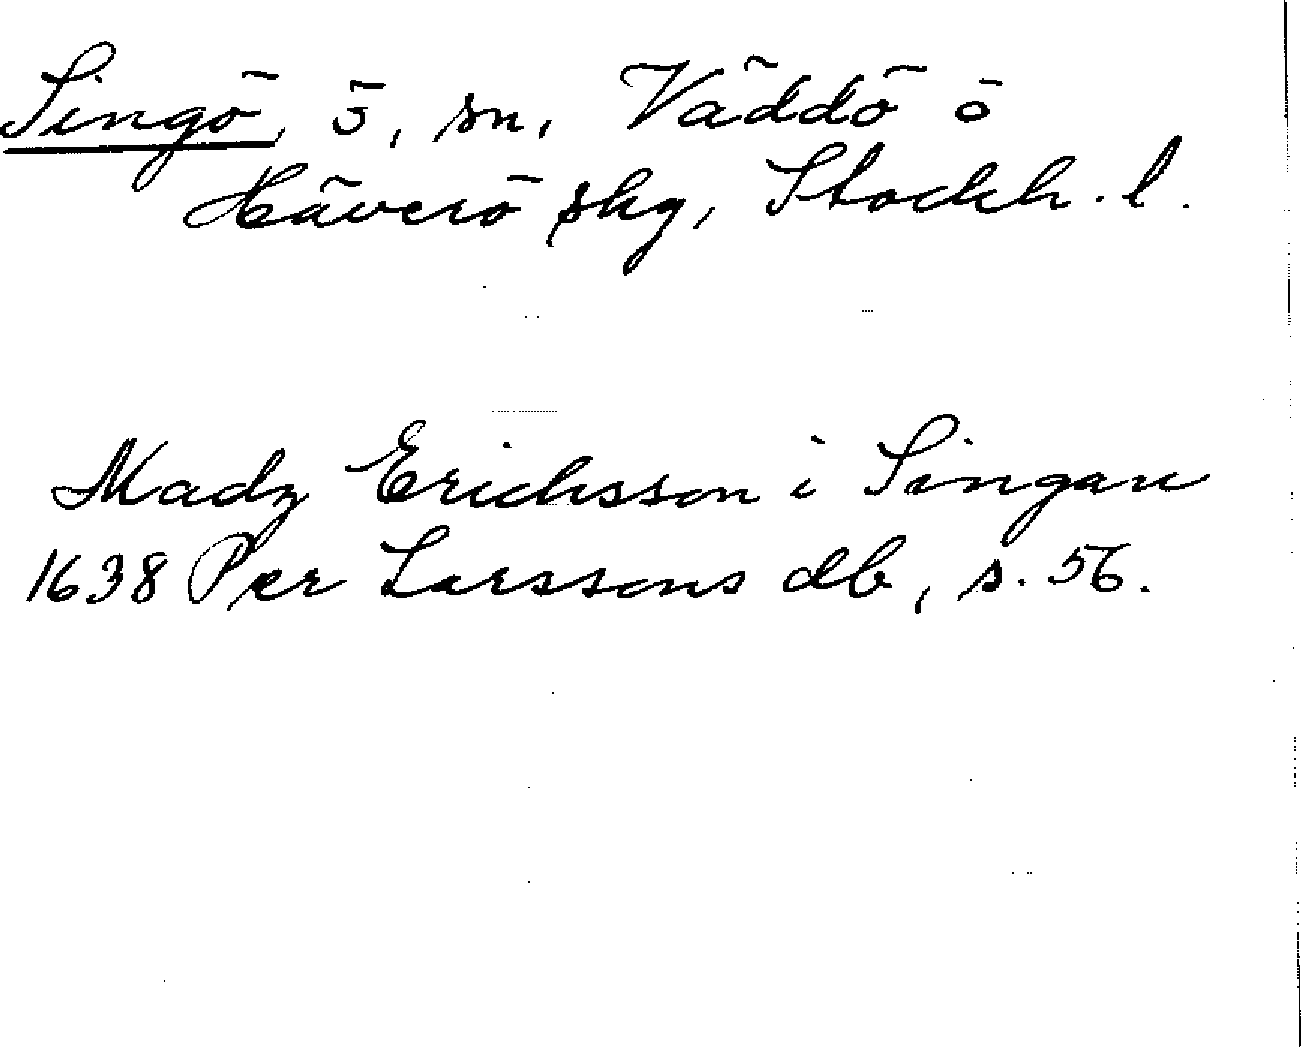 Singö, ö, sn, Väddö o
Häverö skg, Stockh. l.
Madz Ericksson i Singan
1638 Per Larssons db, s. 56.